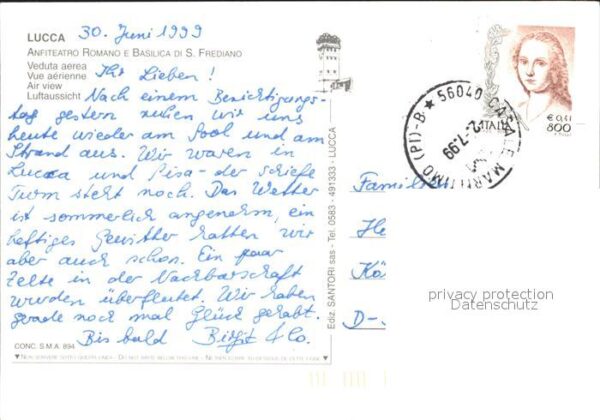 LUCCA
30. Juni 1999
ANFITEATRO ROMANO E BASILICA DI S. FREDIANO
Veduta aerea
Vue aérienne
Air view
Luftaussicht
Ihr Lieben!
Nach einem Besichtigungs-
tag gestern ruhen wir uns
heute wieder am Pool und am
Strand aus. Wir waren in
Lucca und Pisa - der schiefe
Turm steht noch. Das Wetter
ist sommerlich angenehm, ein
heftiges Gewitter hatten wir
aber auch schon. Ein paar
Zelte in der Nachbarschaft
wurden überflutet. Wir haben
gerade noch mal Glück gehabt.
Bis bald Birgit & Co.
CONC. S.M.A. 894
Ediz. SANTORI sas - Tel. 0583 - 491333 - LUCCA
56040 CASALE MARITTIMO (PI) - B
2-7.99
ITALIA
€ 0,41
800
Familie
He
Kö
D-
privacy protection
Datenschutz